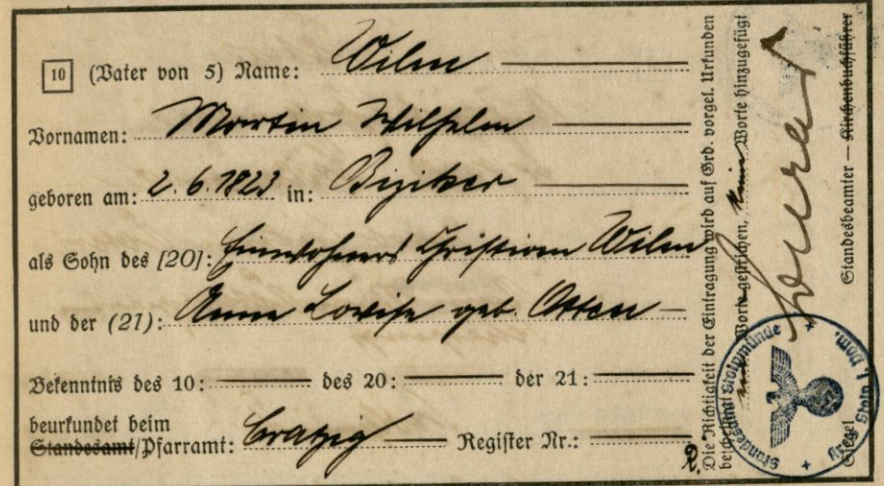 10 (Vater von 5) Name: Wilm
Vornamen: Martin Wilhelm
geboren am: 2. 6. 1823 in: Biziker
als Sohn des [20]: Einwohners Christian Wilm
und der (21): Anna Lovise geb. Otten
Bekenntnis des 10: des 20: der 21:
beurkundet beim
Standesamt/Pfarramt: Cratzig Register Nr.:
Die Richtigkeit der Eintragung wird auf Grd. vorgel. Urkunden
Worte gestrichen, Worte hinzugefügt
Standesbeamter — Kirchenbuchführer
Standesamt Stolpmünde
Kreis Stolp i. Pom.